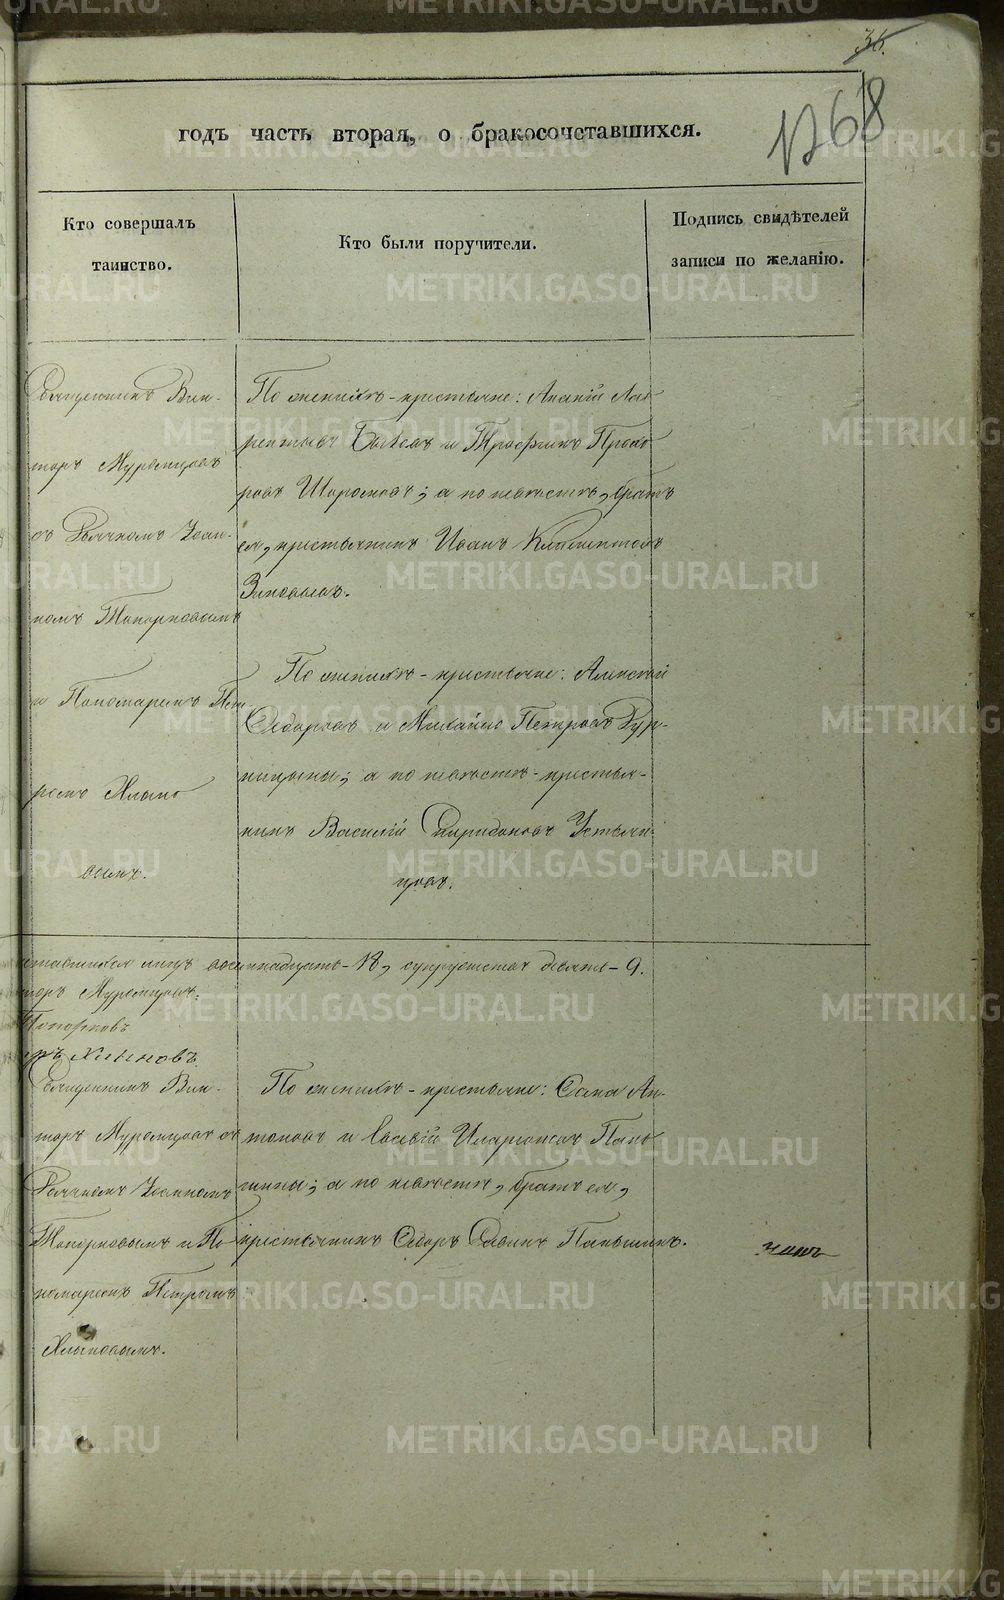 36.
1768
годъ часть вторая, о бракосочетавшихся.
Кто совершалъ
таинство.
Кто были поручители.
Подпись свидѣтелей
записи по желанію.
Священникъ Вик-
торъ Муромцовъ
съ Дьячкомъ Іоан-
номъ Топорковымъ
и Пономаремъ Пет
ромъ Хлыно
вымъ.
По женихѣ - крестьяне: Ананій Лав
рентьевъ и Трофимъ Прохо
ровъ; а по невѣстѣ, братъ
ея, крестьянинъ Иванъ Климентовъ
Зиновьевъ.
По женихѣ - крестьяне: Алексѣй
Ѳедоровъ и Михайло Петровъ Дур-
ницыны; а по невѣстѣ - крестья-
нинъ Василій Спиридоновъ Устьян-
цовъ.
восемнадцать - 18, супружествъ девять - 9.
торъ Муромцовъ.
Топорковъ
Хлыновъ
Священникъ Вик-
торъ Муромцовъ съ
Дьячкомъ Іоанномъ
Топорковымъ и По
номаремъ Петромъ
Хлыновымъ.
По женихѣ - крестьяне: Савва Ан-
тоновъ и Иларіоновъ Пань
шины; а по невѣстѣ, братъ ея,
крестьянинъ Ѳедоръ Саввинъ Паньшинъ.
METRIKI.GASO-URAL.RU